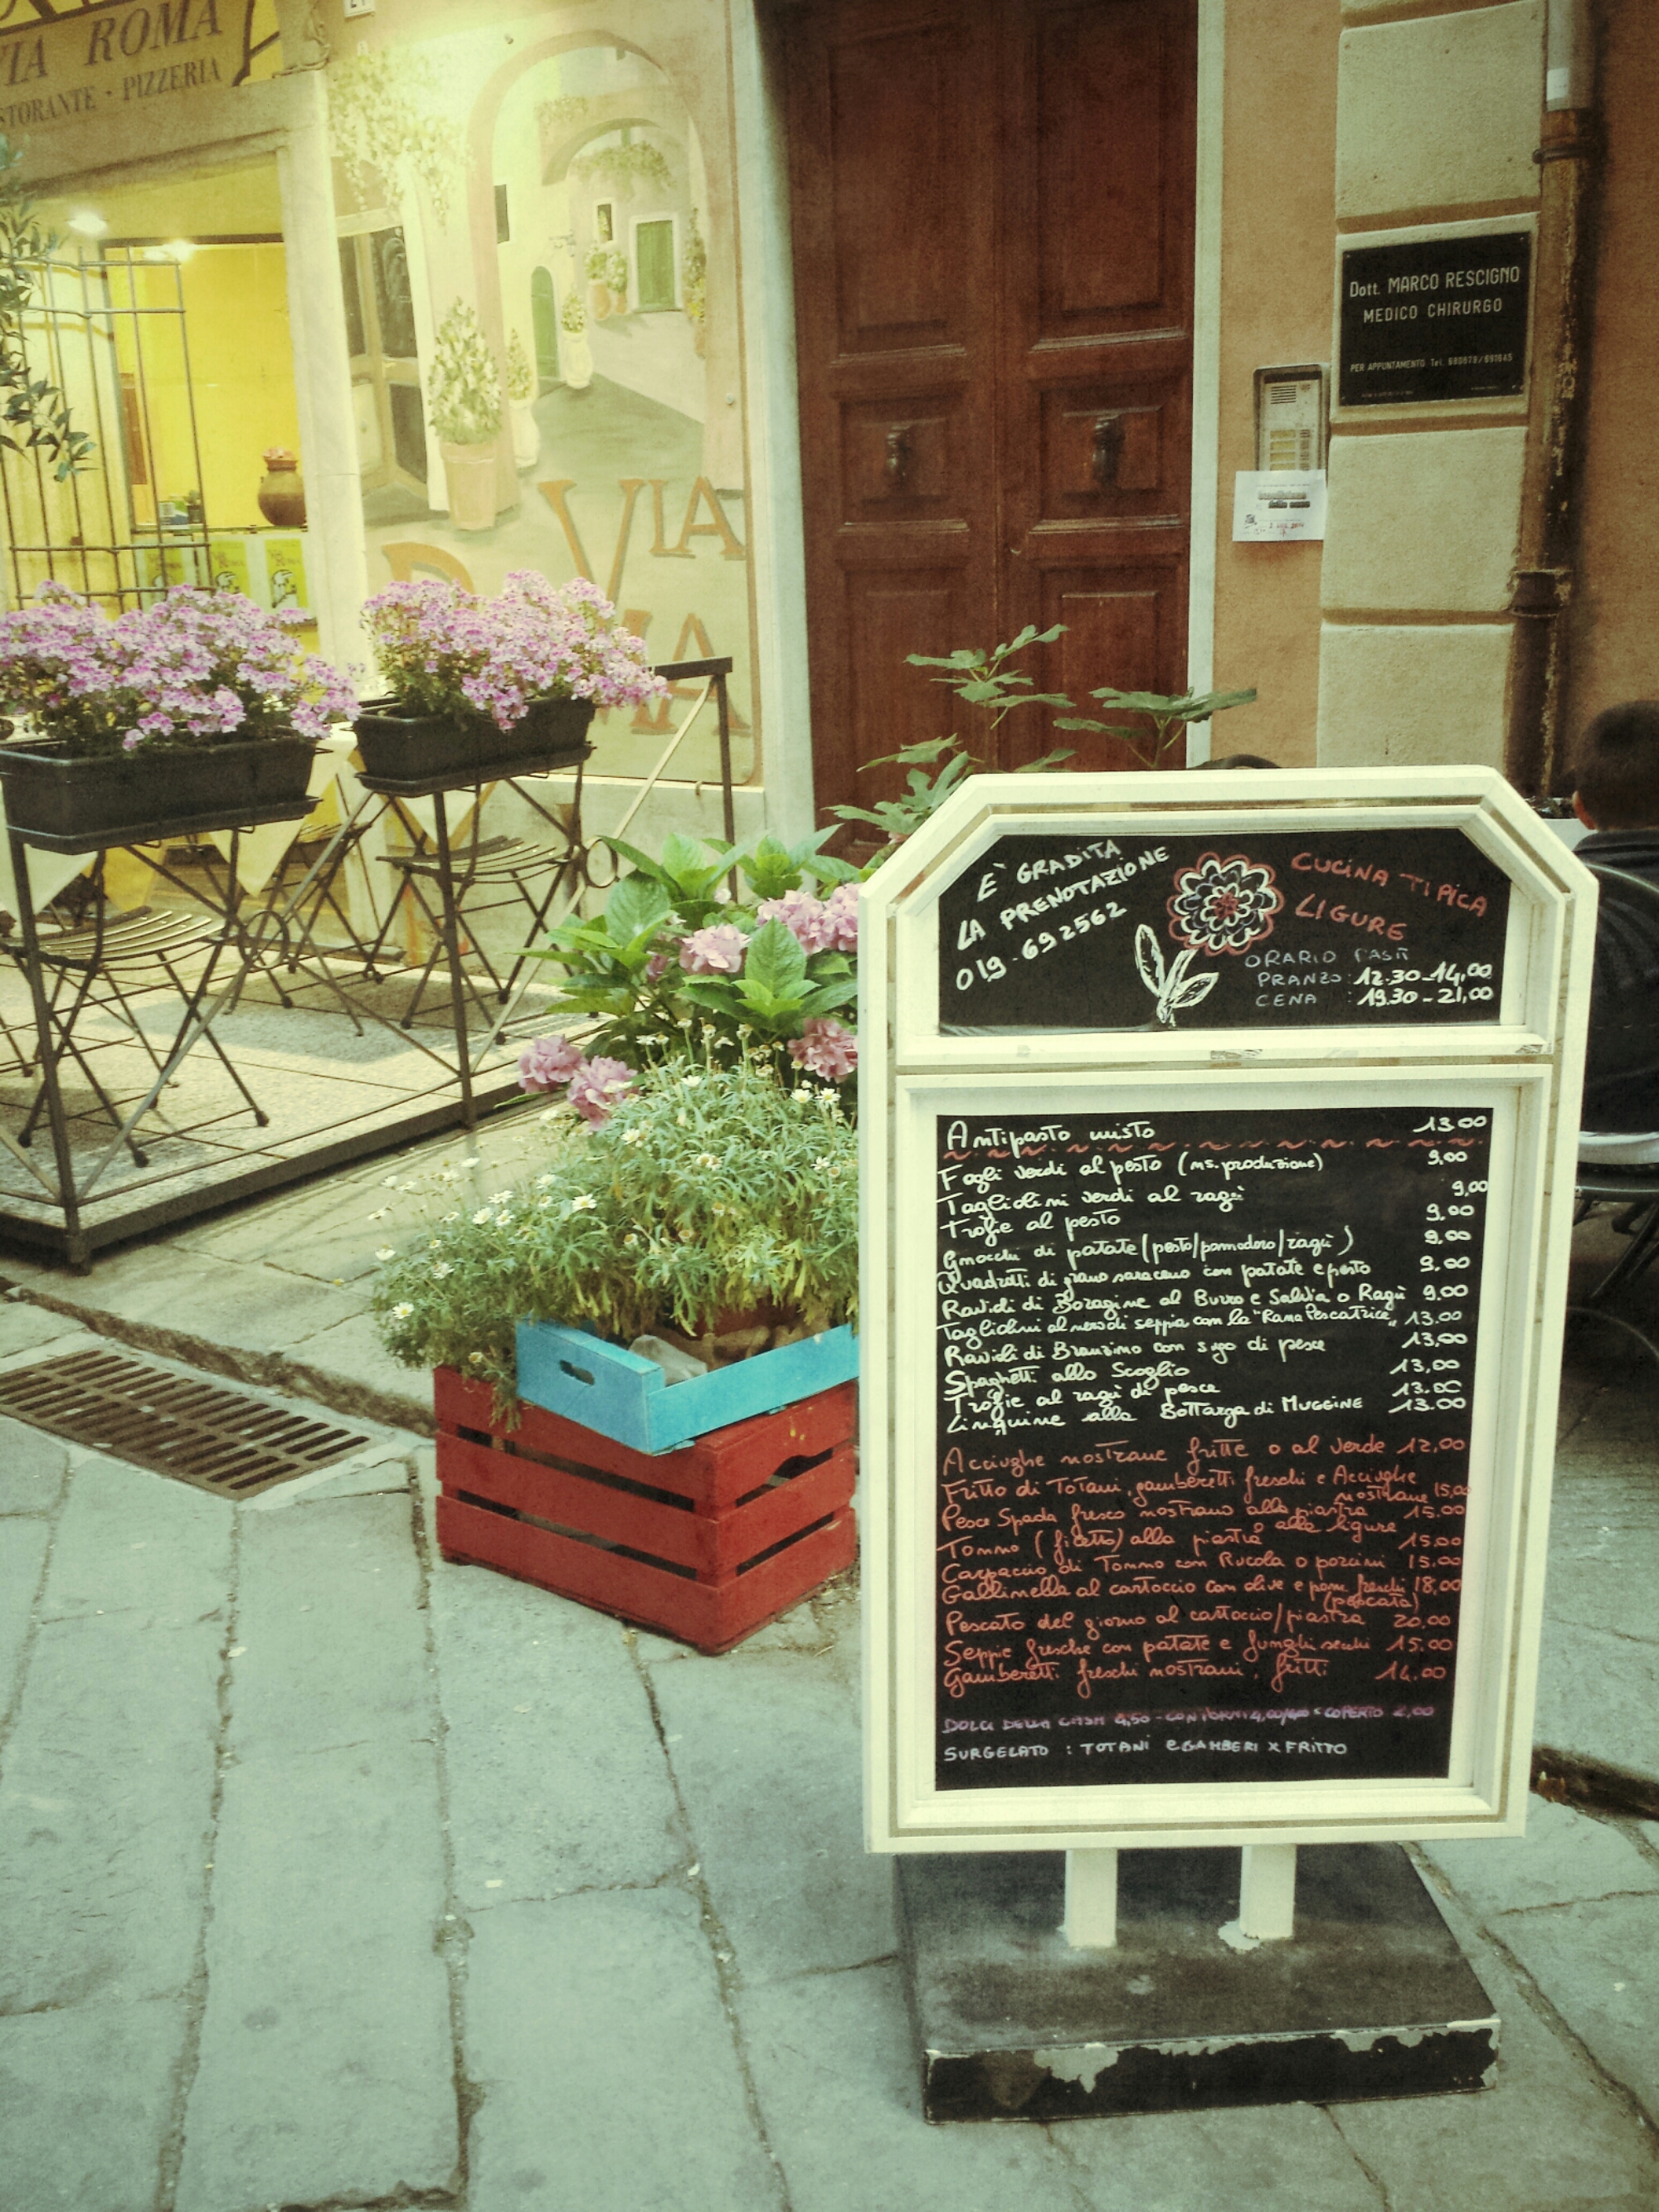 VIA ROMA
STORANTE · PIZZERIA
VIA
Dott. MARCO RESCIGNO
MEDICO CHIRURGO
PER APPUNTAMENTO Tel.
È GRADITA
LA PRENOTAZIONE
019-692562
CUCINA TIPICA
LIGURE
ORARIO PASTI
PRANZO: 12.30-14,00
CENA : 19.30-21,00
Antipasto misto 13.00
Fogli verdi al pesto (ns. produzione) 9,00
Tagliolini verdi al ragù 9,00
Trofie al pesto 9.00
Gnocchi di patate (pesto/pomodoro/ragù) 9.00
Quadrotti di grano saraceno con patate e pesto 9.00
Ravioli di Boragine al Burro e Salvia o Ragù 9,00
Tagliolini al nero di seppia con la "Rana Pescatrice" 13.00
Ravioli di Branzino con sugo di pesce 13,00
Spaghetti allo Scoglio 13,00
Trofie al ragù di pesce 13.00
Linguine alla Bottarga di MUGGINE 13.00
Acciughe nostrane fritte o al verde 12,00
Fritto di Totani, gamberetti freschi e Acciughe
nostrane 15,00
Pesce Spada fresco nostrano alla piastra 15.00
alla ligure
Tonno (filetto) alla piastra 15.00
Carpaccio di Tonno con Rucola o porcini 15.00
Gallinella al cartoccio con olive e pom. freschi 18,00
(pescata)
Pescato del giorno al cartoccio/piastra 20.00
Seppie fresche con patate e funghi secchi 15.00
Gamberetti freschi nostrani, fritti 14.00
DOLCI DELLA CASA 4,50 - CONTORNI COPERTO 2,00
SURGELATO : TOTANI e GAMBERI x FRITTO